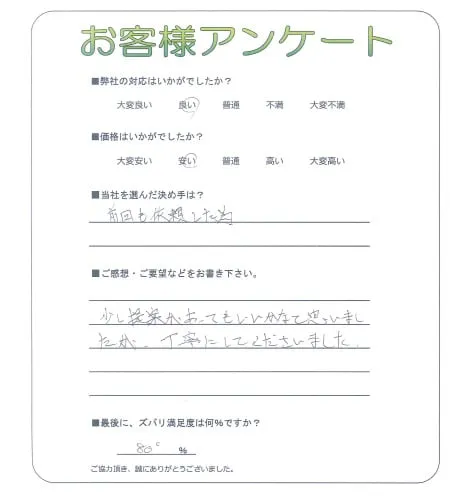 お客様アンケート
■弊社の対応はいかがでしたか？
大変良い 良い 普通 不満 大変不満
■価格はいかがでしたか？
大変安い 安い 普通 高い 大変高い
■当社を選んだ決め手は？
前回も依頼した為
■ご感想・ご要望などをお書き下さい。
少し提案があってもいいかなと思いまし
たが、丁寧にしてくださいました。
■最後に、ズバリ満足度は何％ですか？
80 ％
ご協力頂き、誠にありがとうございました。